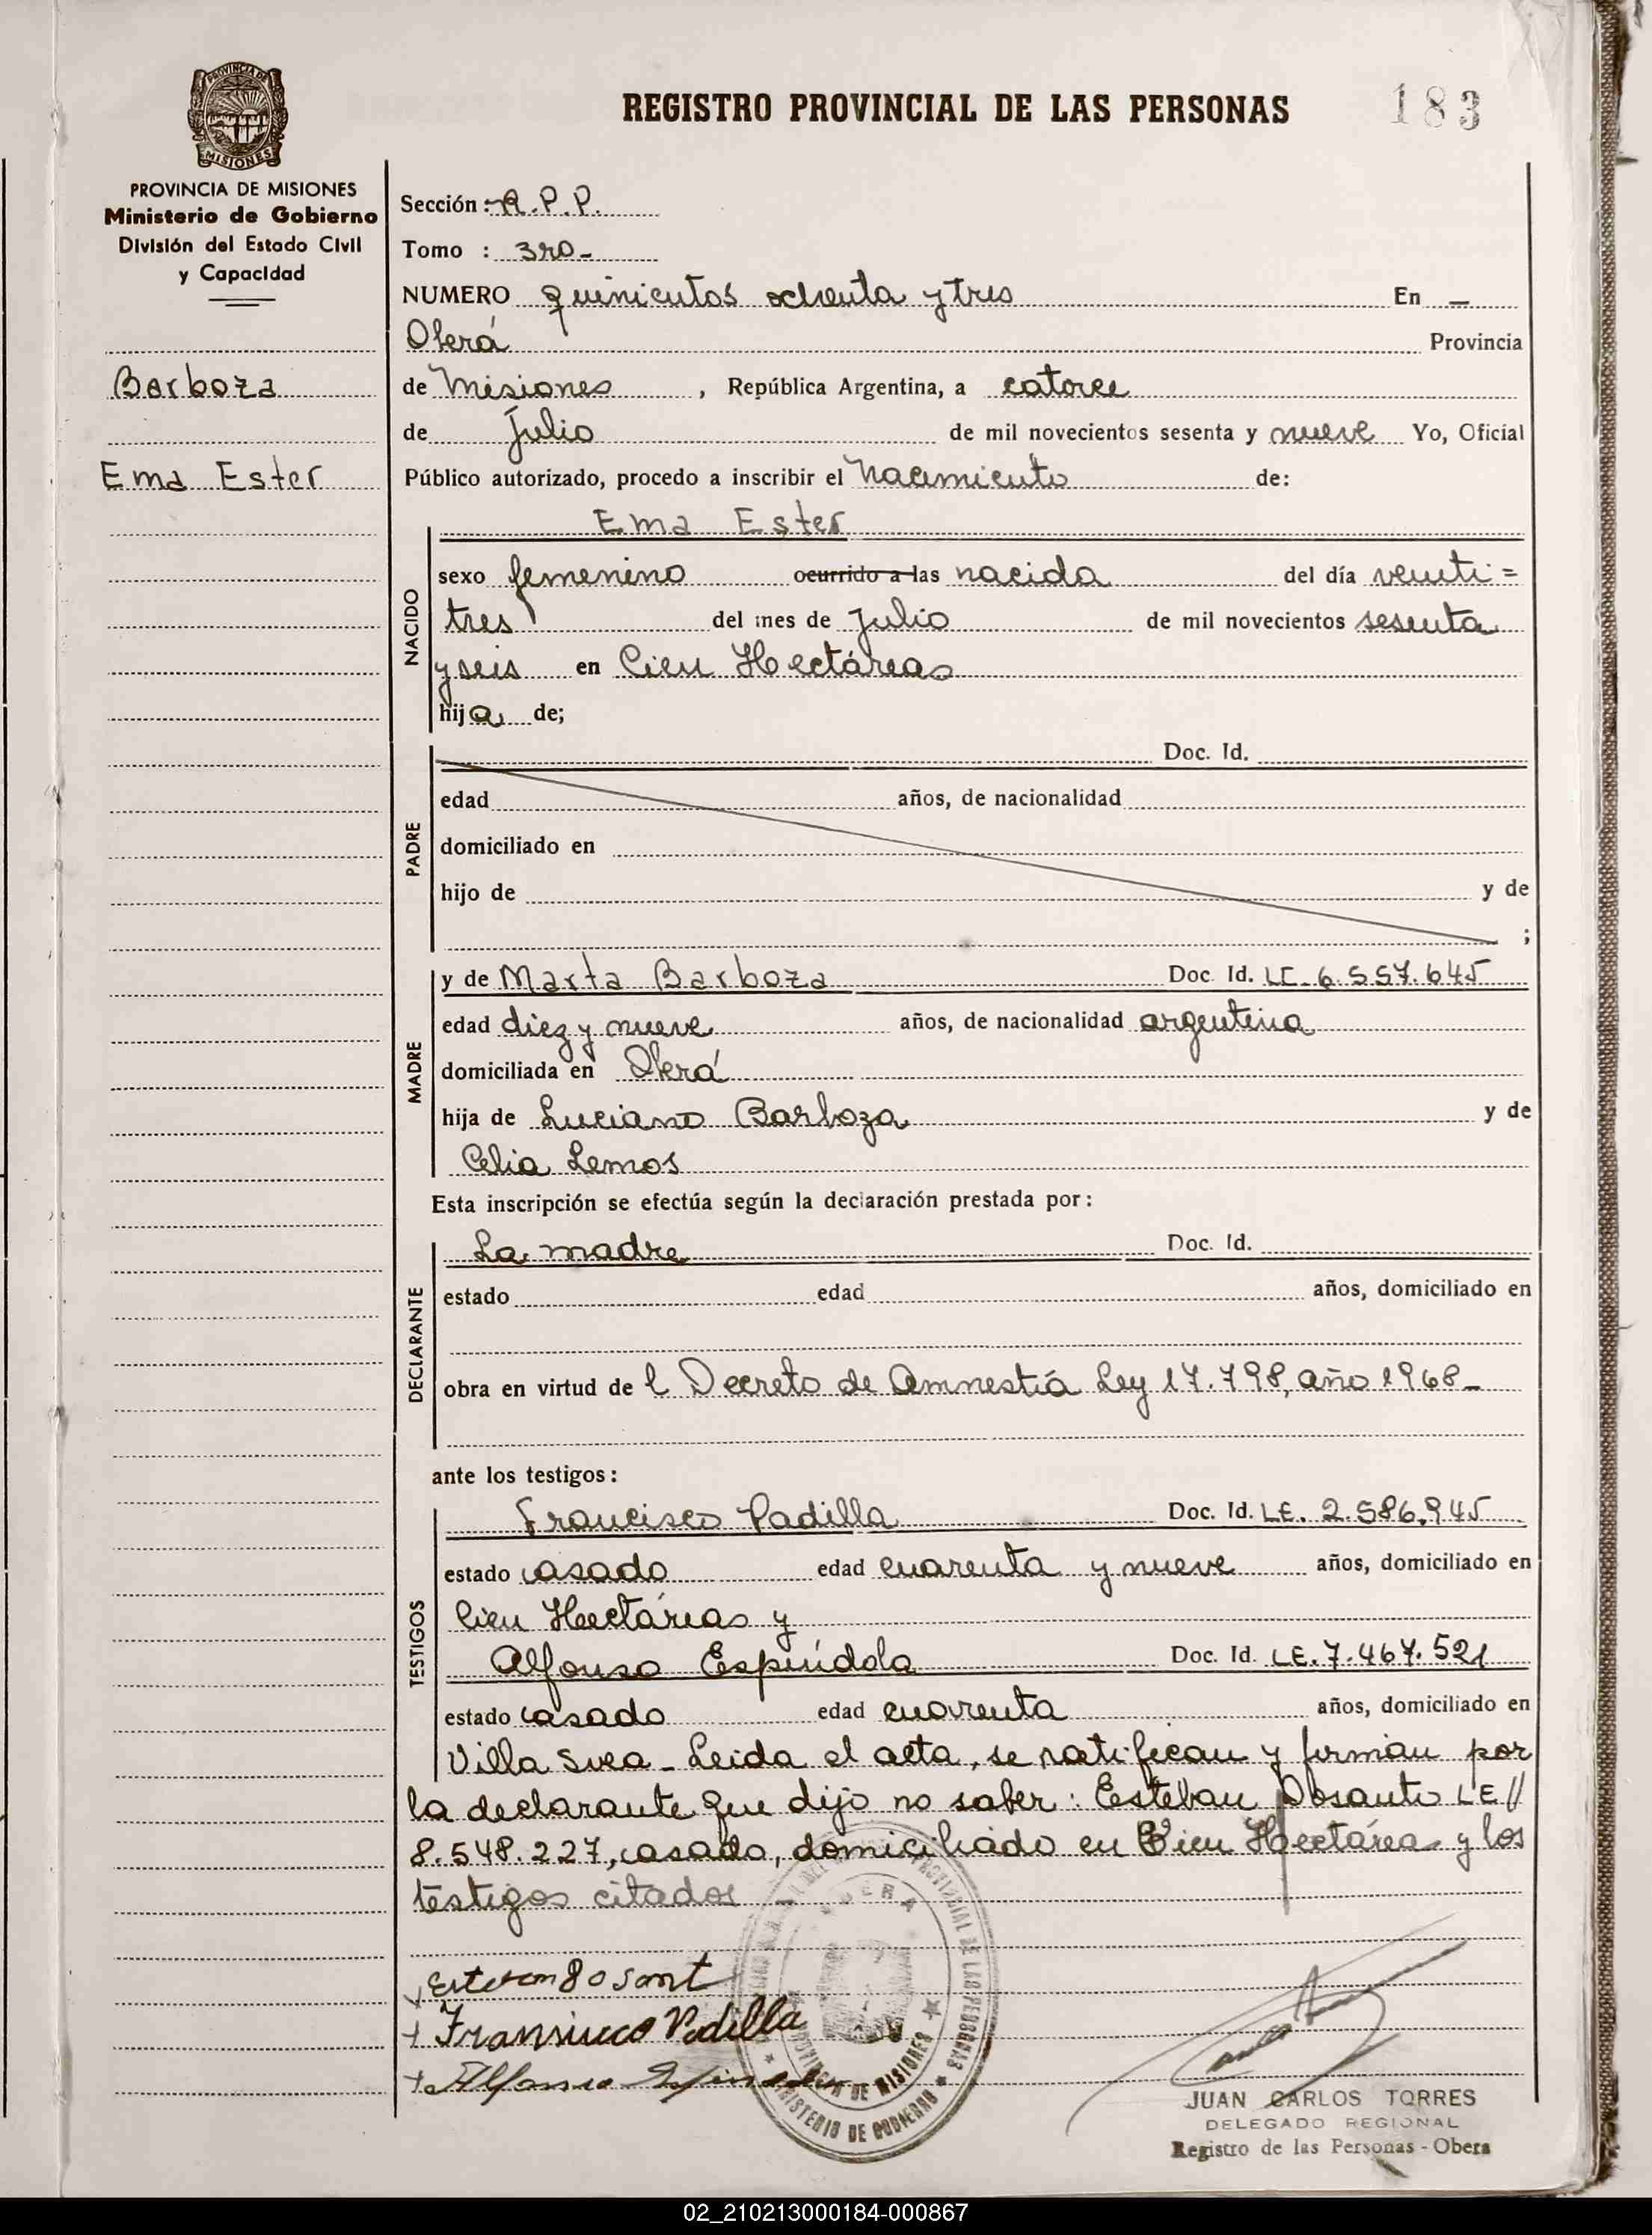 REGISTRO PROVINCIAL DE LAS PERSONAS 183
PROVINCIA DE MISIONES
MISIONES
PROVINCIA DE MISIONES
Ministerio de Gobierno
División del Estado Civil
y Capacidad
Barboza
Ema Ester
Sección: R.P.P.
Tomo : 3ro-
NUMERO quinientos ochenta y tres En —
Oberá Provincia
de Misiones , República Argentina, a catorce
de Julio de mil novecientos sesenta y nueve Yo, Oficial
Público autorizado, procedo a inscribir el Nacimiento de:
NACIDO
Ema Ester
sexo femenino ocurrido a las nacida del día veinti=
tres del mes de Julio de mil novecientos sesenta
y seis en Cien Hectáreas
hija de;
PADRE
Doc. Id.
edad años, de nacionalidad
domiciliado en
hijo de y de
;
MADRE
y de Marta Barboza Doc. Id. LC. 6.557.645
edad diez y nueve años, de nacionalidad argentina
domiciliada en Oberá
hija de Luciano Barboza y de
Celia Lemos
Esta inscripción se efectúa según la declaración prestada por:
DECLARANTE
La madre Doc. Id.
estado edad años, domiciliado en
obra en virtud de l Decreto de Amnestía Ley 17.798, año 1968-
ante los testigos:
TESTIGOS
Francisco Padilla Doc. Id. LE. 2.586.945
estado casado edad cuarenta y nueve años, domiciliado en
Cien Hectáreas y
Alfonso Espíndola Doc. Id. LE. 7.467.521
estado casado edad cuarenta años, domiciliado en
Villa Svea - Leida el acta, se ratifican y firman por
la declarante que dijo no saber: Esteban LE//
8.548.227, casado, domiciliado en Cien Hectáreas y los
testigos citados
Francisco Padilla
Alfonso
OBERA
PROVINCIAL DE LAS PERSONAS
PROVINCIA DE MISIONES
MINISTERIO DE GOBIERNO
JUAN CARLOS TORRES
DELEGADO REGIONAL
Registro de las Personas - Obera
02_210213000184-000867